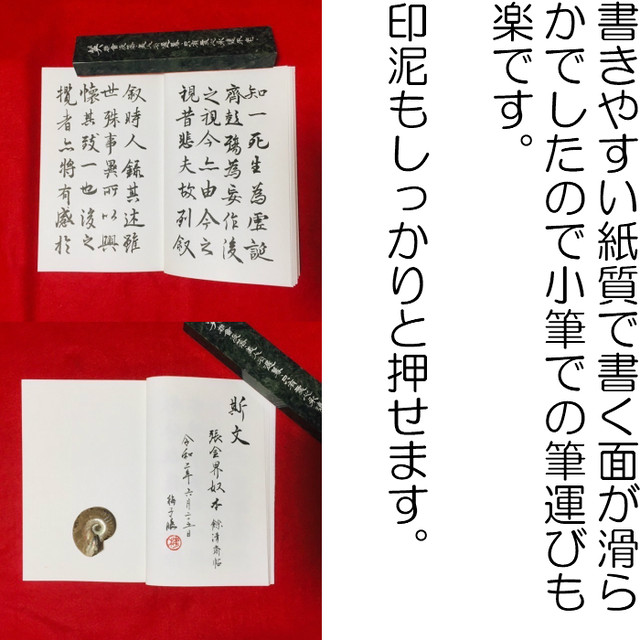 書きやすい紙質で書く面が滑ら
かでしたので小筆での筆運びも
楽です。
印泥もしっかりと押せます。
知一死生為虚誕
齊彭殤為妄作後
之視今亦由今之
視昔悲夫故列叙
叙時人録其述雖
世殊事異所以興
懐其致一也後之
攬者亦將有感於
斯文
張金界奴本 餘清齋帖
令和二年六月二十五日